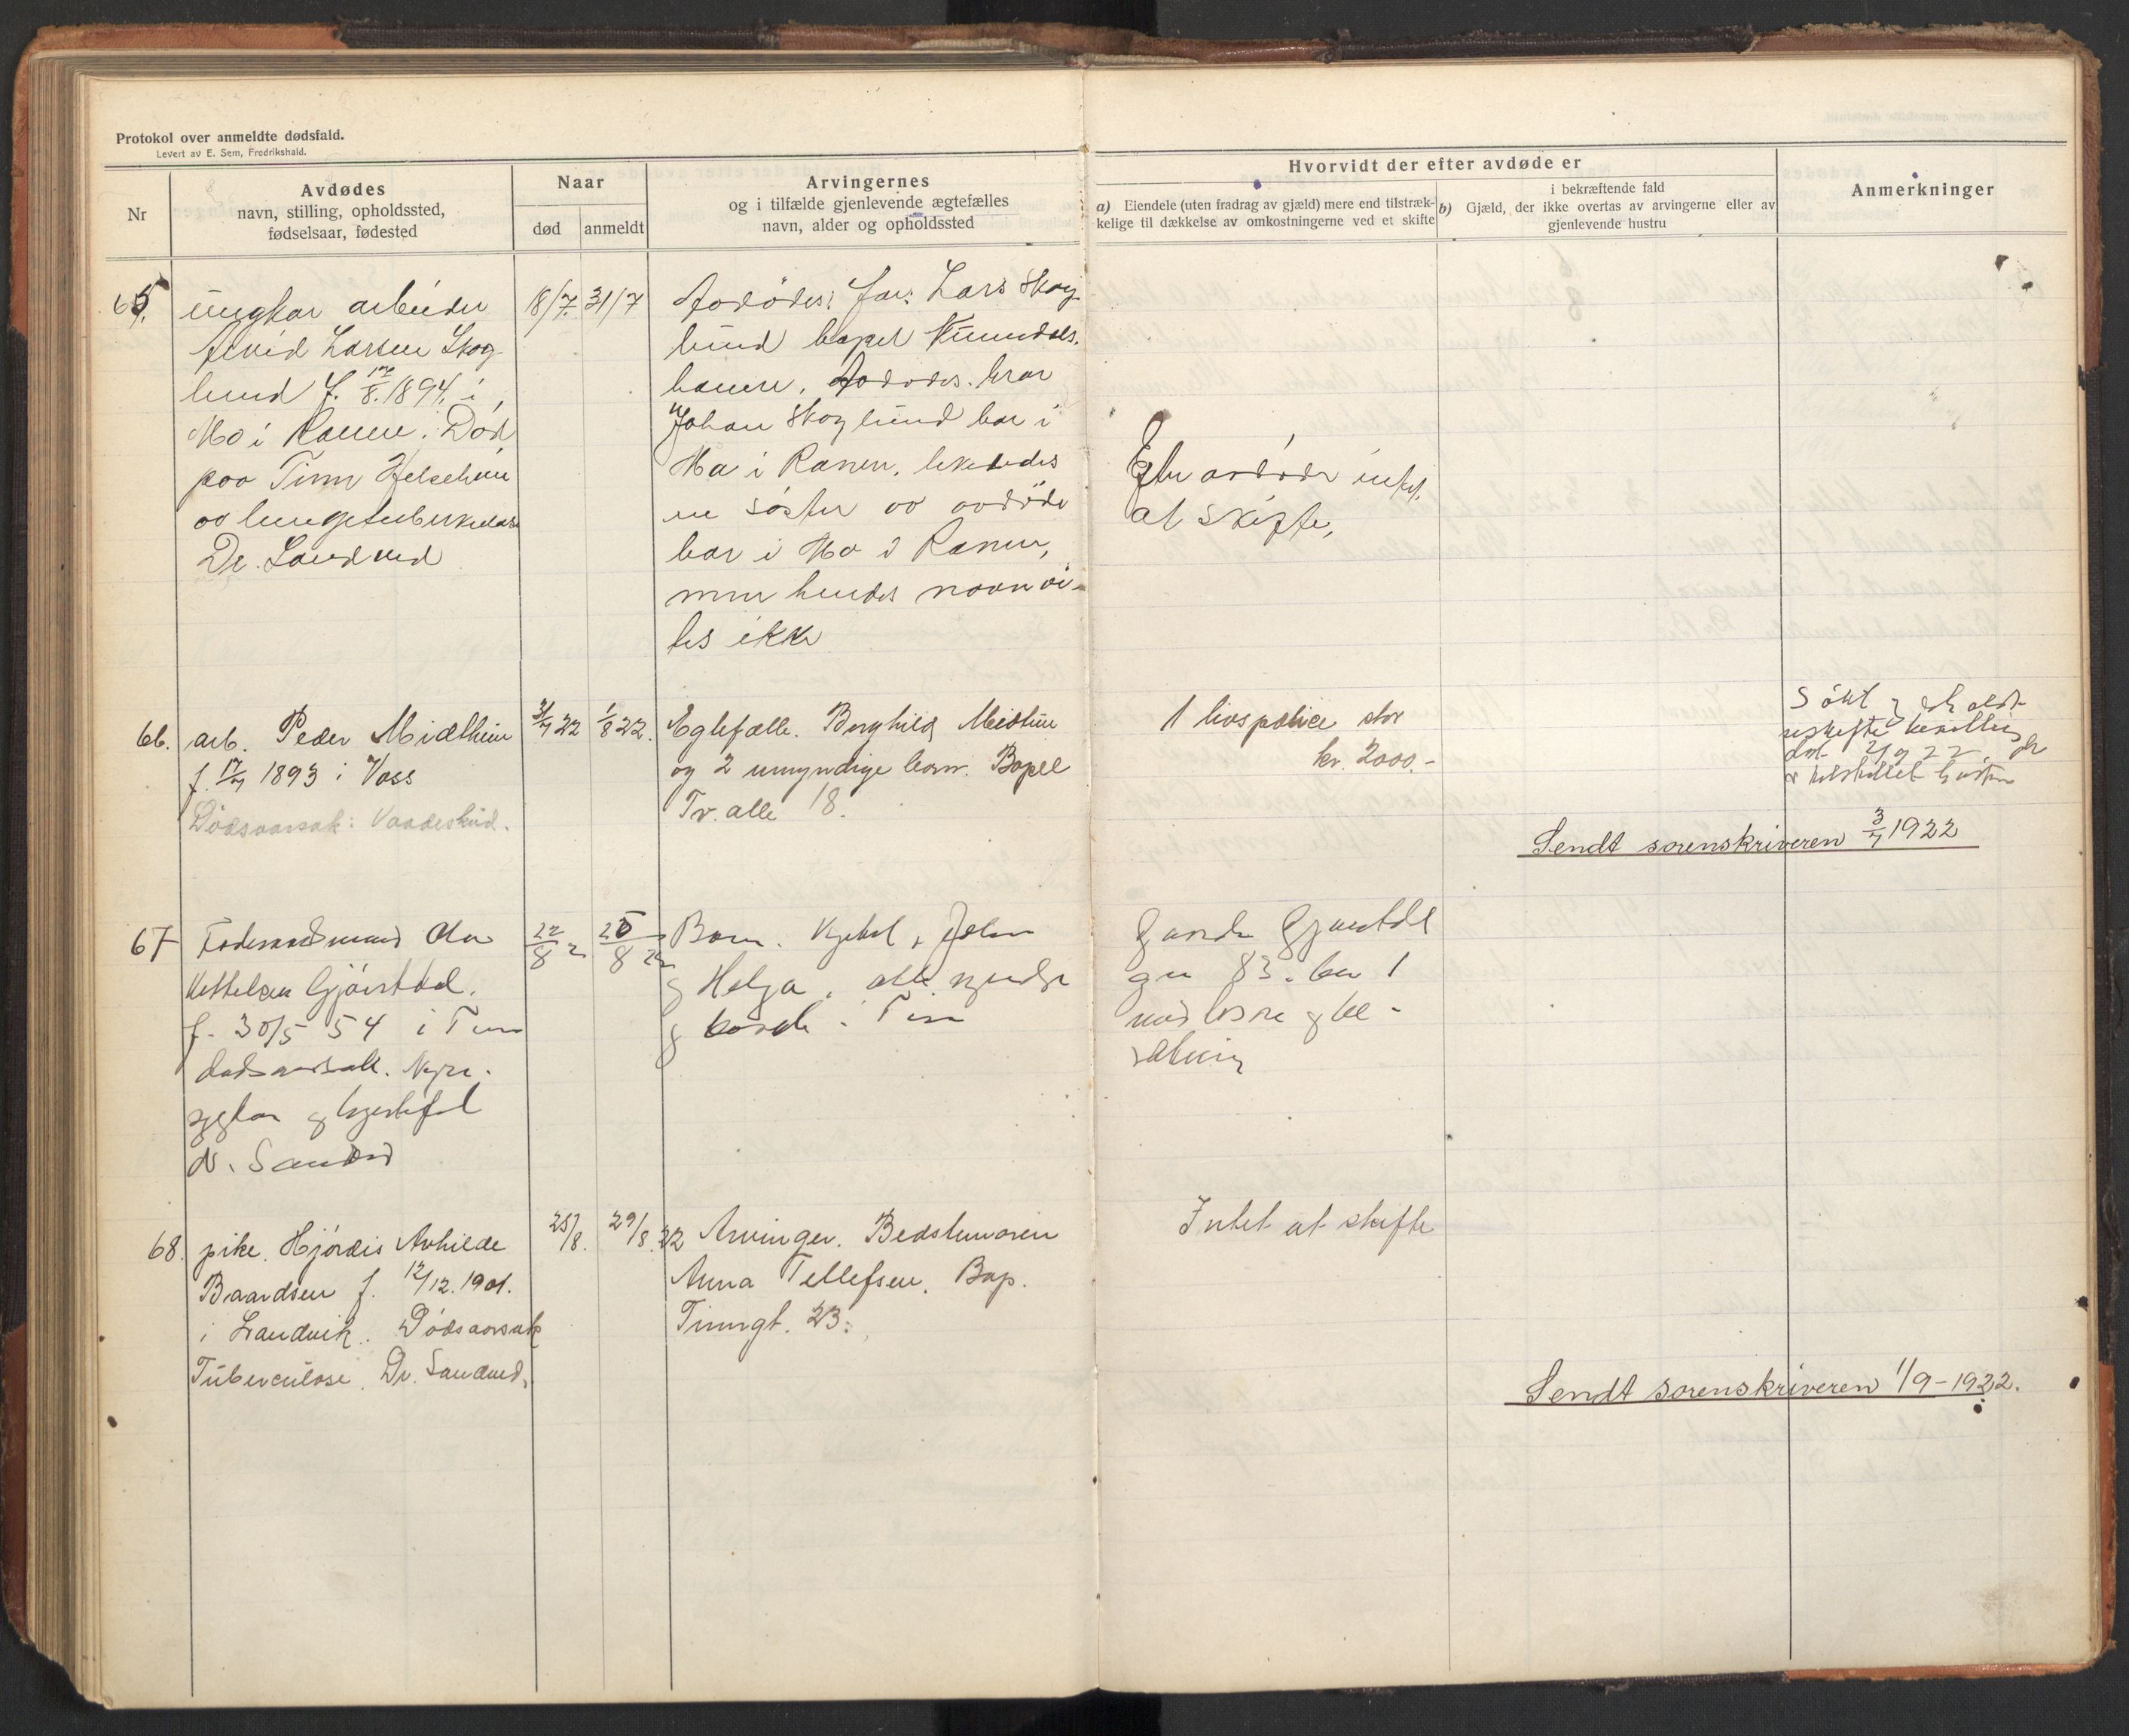 Protokol over anmeldte dødsfald.
Levert av E. Sem, Fredrikshald.
Nr
Avdødes
navn, stilling, opholdssted,
fødselsaar, fødested
Naar
død
anmeldt
Arvingernes
og i tilfælde gjenlevende ægtefælles
navn, alder og opholdssted
Hvorvidt der efter avdøde er
a) Eiendele (uten fradrag av gjæld) mere end tilstræk-
kelige til dækkelse av omkostningerne ved et skifte
i bekræftende fald
b) Gjæld, der ikke overtas av arvingerne eller av
gjenlevende hustru
Anmerkninger
65.
ungkar arbeider
Arvid Larsen Skog-
lund f. 8. 1894. i
Mo i Ranen. Død
paa Tinn Helseheim
av lungetuberkulose
Dr. Sandved
18/7.
31/7
Avdødes far: Lars Skog-
lund bopel
Avdødes bror
Johan Skoglund bor i
Mo i Ranen, likeledes
en søster av avdøde
bor i Mo i Ranen,
men hendes navn vi-
tes ikke
Efter avdøde intet
at skifte,
66.
arb. Peder Midtheim
f. 17/7 1893 i Voss
Dødsaarsak: Vaadeskud.
31/7 22
1/8 22.
Egtefælle. Borghild Meidheim
og 2 umyndige born. Bopel
Tv. alle 18.
1 livspolice stor
kr. 2000.-
Søkt og erholdt
uskifte bevilling
dat. 2/9 22
er tilstillet hustru
Sendt sorenskriveren 3/7 1922
67
Foderaadsmand Ola
Kettelsen Gjøistdal.
f. 30/5 54 i Tinn
dødsaarsak. Nyre-
sygdom og hjertefeil
Dr. Sandved
22/8 22
25/8 22
Born. Kjetil, Johan
og Helga, alle myndige
og boende i Tinn
Gaarden Gjøistdal
gn 83. bn 1
med løsøre og be-
sætning
68.
pike. Hjördis Avhilde
Baardsen f. 12/12. 1901.
i Landvik. Dødsaarsak
Tuberculose. Dr. Sandved.
25/8.
29/8. 22
Arvinger. Bedstemoren
Anna Tellefsen. Bop.
Tinngt. 23.
Intet at skifte
Sendt sorenskriveren 1/9-1922.